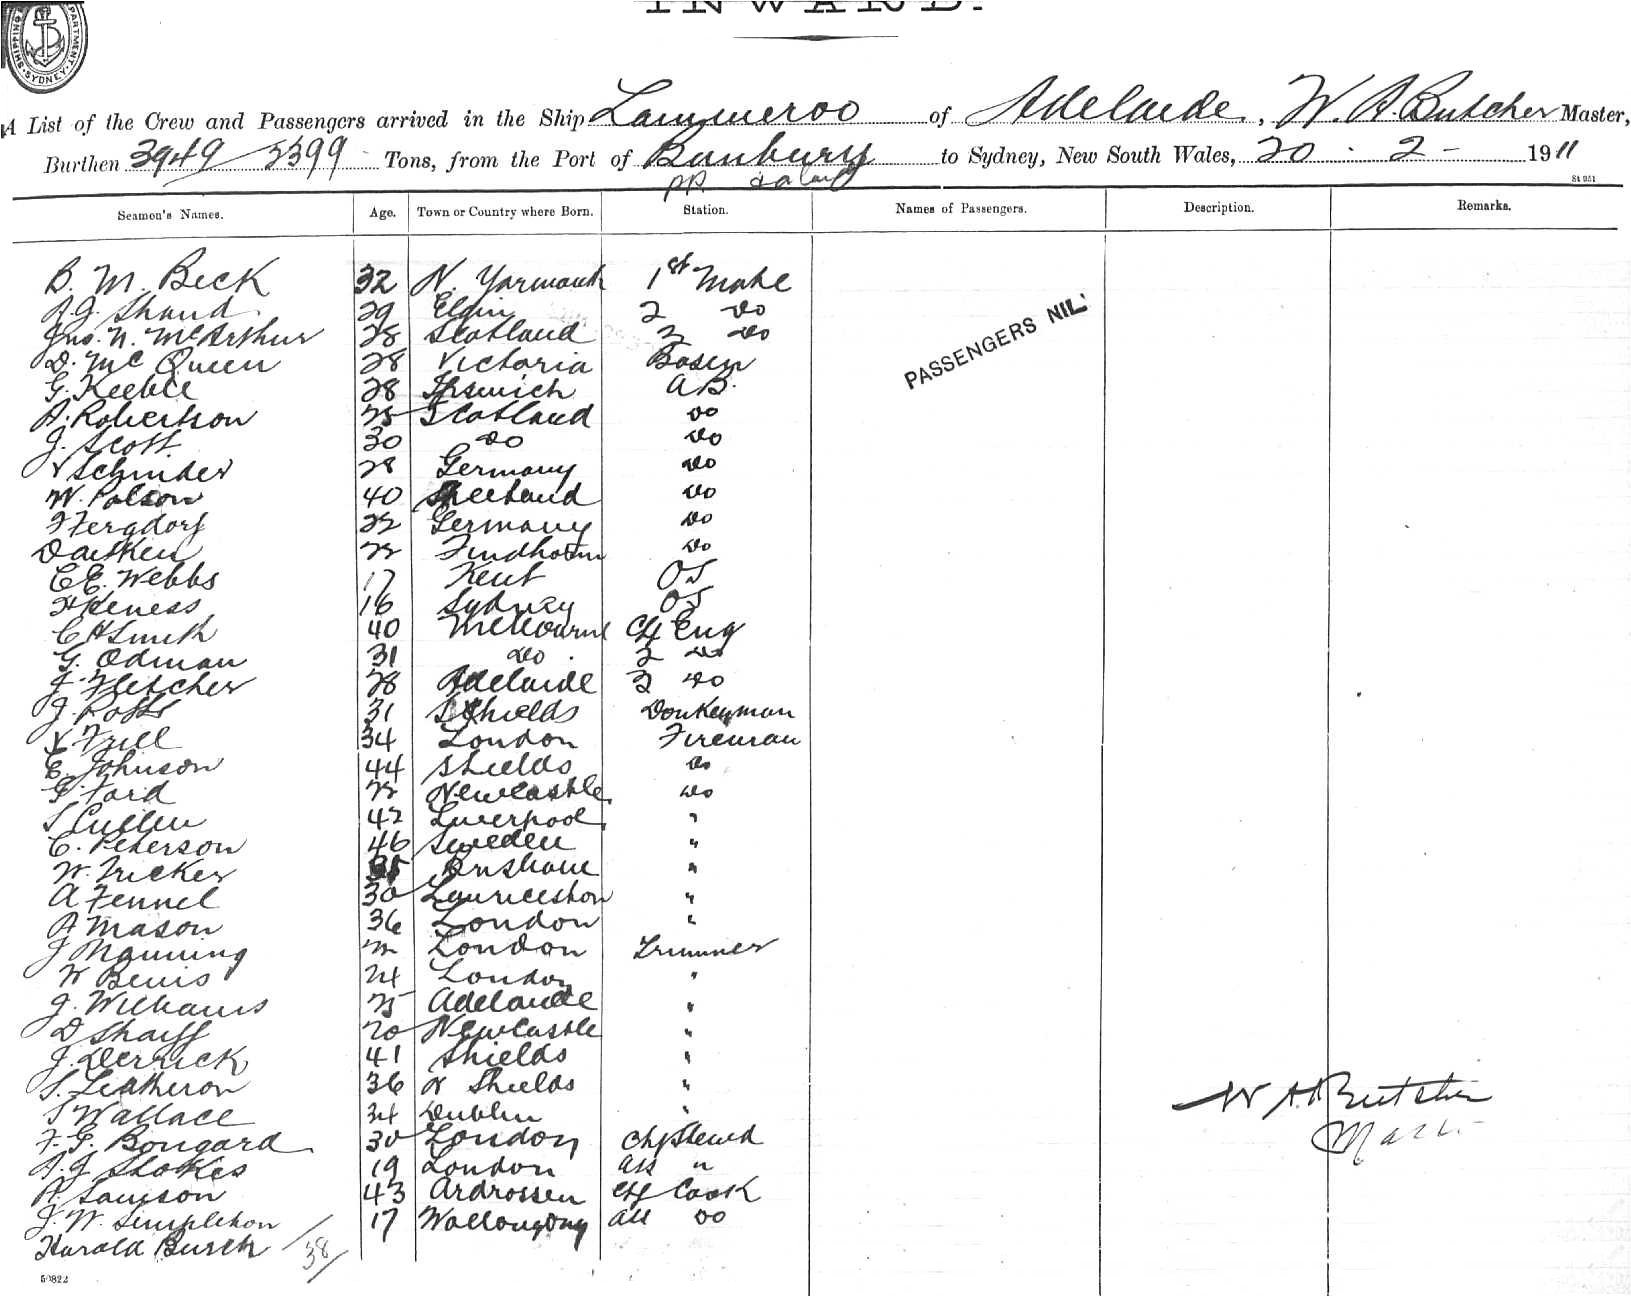 INWARD.
SHIPPING DEPARTMENT. SYDNEY.
A List of the Crew and Passengers arrived in the Ship Lammeroo of Adelaide, W. A. Butcher Master,
Burthen 3949 / 2399 Tons, from the Port of Bunbury to Sydney, New South Wales, 20 - 2 - 1911
St 951
Seamen's Names. Age. Town or Country where Born. Station. Names of Passengers. Description. Remarks.
B. M. Beck 32 N. Yarmouth 1st Mate
A. J. Shand 29 Elgin 2 do
Jno. N. McArthur 28 Scotland 3 do
D. McQueen 28 Victoria Bosen
PASSENGERS NIL.
G. Keeble 28 Ipswich AB.
A. Robertson 25 Scotland do
J. Scott 30 do do
Schnider 28 Germany do
W. Polson 40 Shetland do
Fergdorf 22 Germany do
D Aitken 22 Findhorn do
C E. Webbs 17 Kent OS
H Keness 16 Sydney OS
C H Smith 40 Melbourne Chf Eng
G. Odman 31 do 2 do
J. Fletcher 28 Adelaide 3 do
J. Potts 31 S Shields Donkeyman
Frill 34 London Fireman
E. Johnson 44 Shields do
G. Ford 22 Newcastle do
S Cullen 42 Liverpool "
C. Peterson 46 Sweden "
W. Tricker 35 Brisbane "
A Fennel 30 Launceston "
A Mason 36 London "
J Manning 22 London Trimmer
W Bevis 24 London "
J. Williams 25 Adelaide "
D Shaiff 20 Newcastle "
J. Derrick 41 Shields "
S. Leatheron 36 N Shields "
W A Butcher
S Wallace 34 Dublin "
Master
F. G. Bongard 30 London Chf Stewd
A. J Stokes 19 London Ass "
A. Samson 43 Ardrossen Chf Cook
J. W. Simpleton 17 Wollongong Ass do
Harold Burch 38
50822